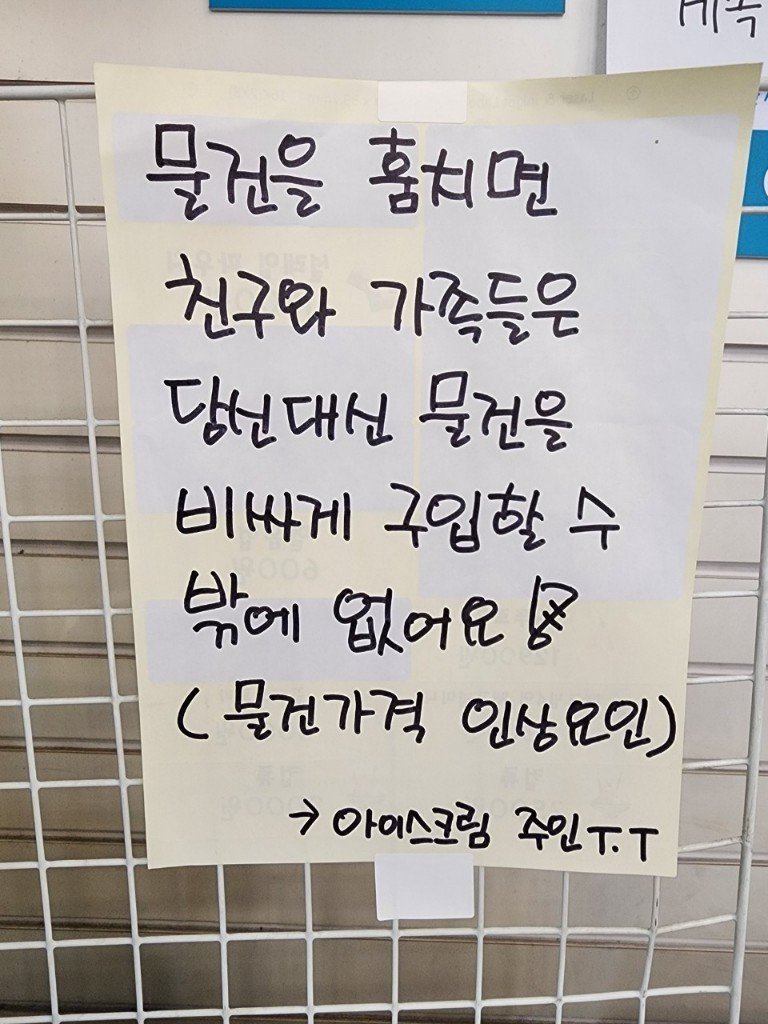 계속
물건을 훔치면
친구와 가족들은
당신대신 물건을
비싸게 구입할 수
밖에 없어요
(물건가격 인상요인)
→ 아이스크림 주인 T.T